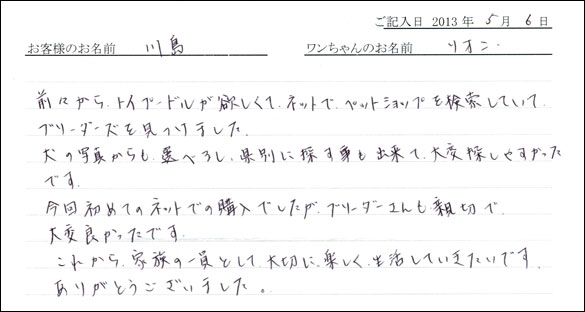 ご記入日 2013年 5月 6日
お客様のお名前 川島 ワンちゃんのお名前 リオン.
前々から、トイプードルが欲しくて、ネットで、ペットショップを検索していて、
ブリーダーズを見つけました.
犬の写真からも、選べるし、県別に探す事も出来て、大変探しやすかった
です.
今回初めてのネットでの購入でしたが、ブリーダーさんも、親切で、
大変良かったです.
これから、家族の一員として、大切に、楽しく、生活していきたいです.
ありがとうございました。